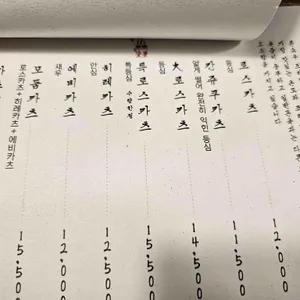 로스카츠
등심
12.000
칸쥬쿠카츠
얇게 썰어 완전히 익힌 등심
11.500
大로스카츠
등심
14.500
특로스카츠
특등심 수량한정
15.500
히레카츠
안심
12.500
에비카츠
새우
12.000
모둠카츠
로스카츠+히레카츠+에비카츠
15.500